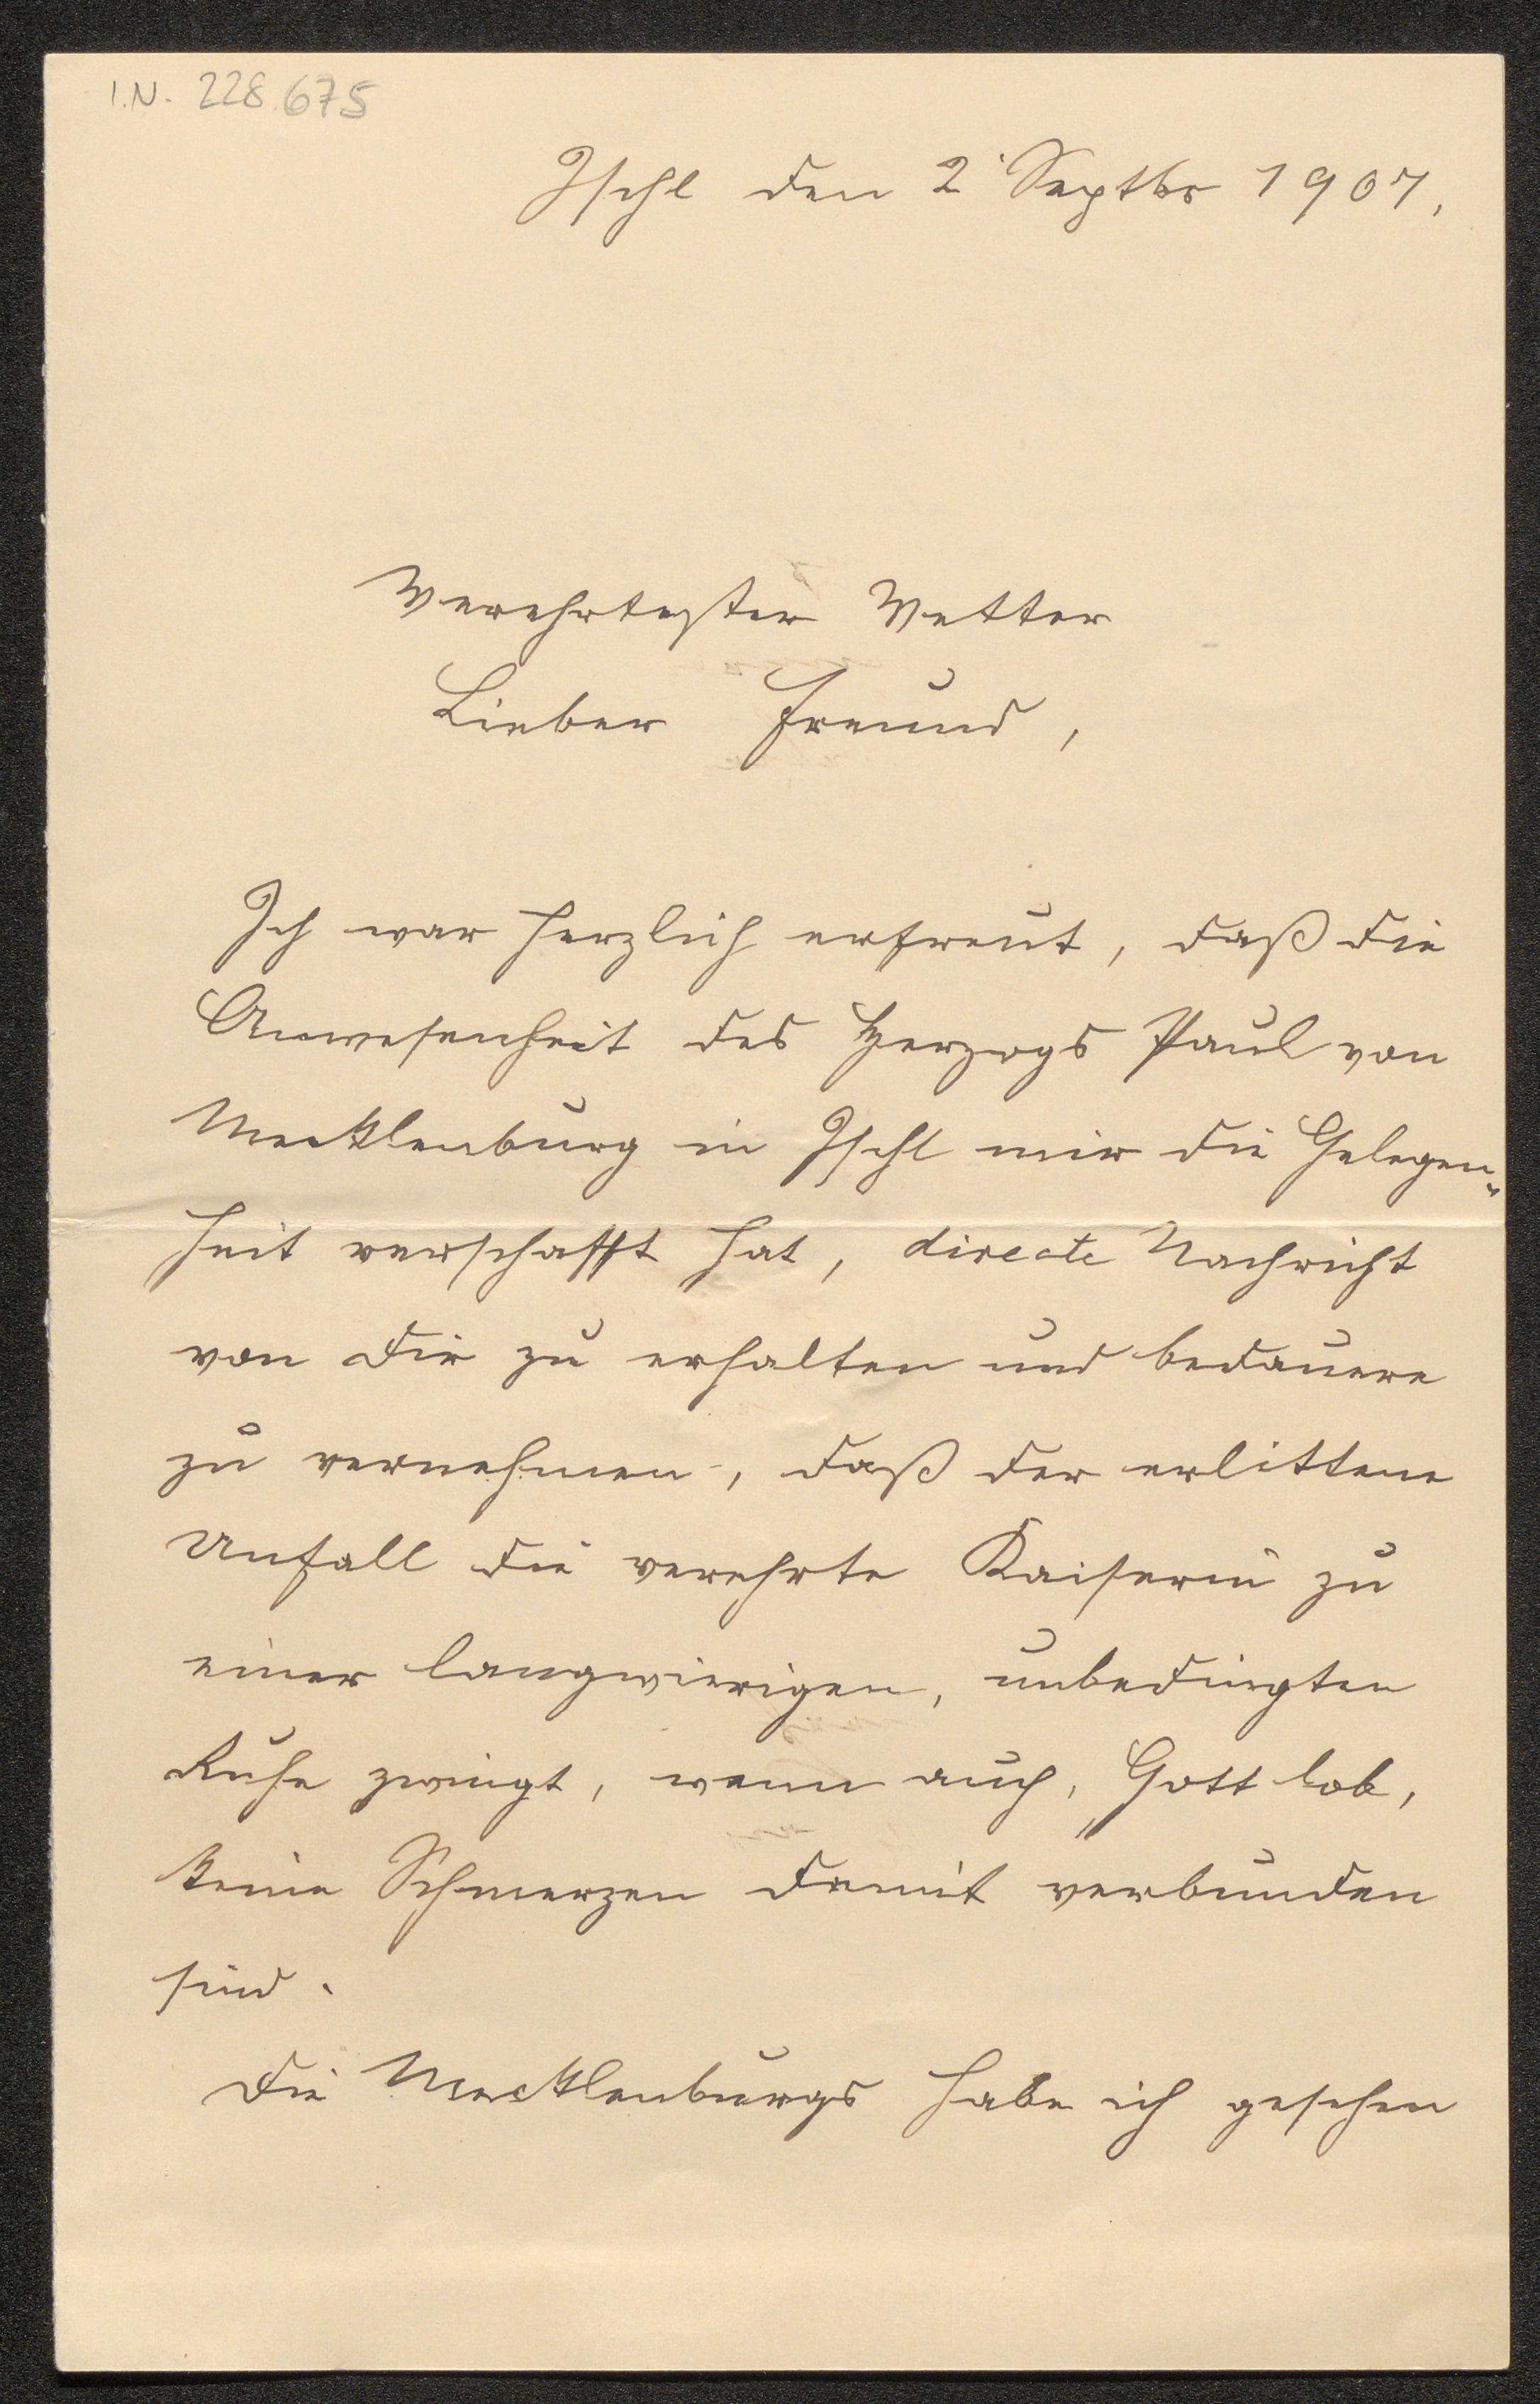 I.N. 228.675
Ischl den 2. Septbr 1907,
Verehrtester Vetter
Lieber Freund,
Ich war herzlich erfreut, daß die
Anwesenheit des Herzogs Paul von
Mecklenburg in Ischl mir die Gelegen„
heit verschafft hat, directe Nachricht
von Dir zu erhalten und bedauere
zu vernehmen, daß der erlittene
Unfall die verehrte Kaiserin zu
einer langwierigen, unbedingten
Ruhe zwingt, wenn auch, Gott lob,
keine Schmerzen damit verbunden
sind.
Die Mecklenburgs habe ich gesehen